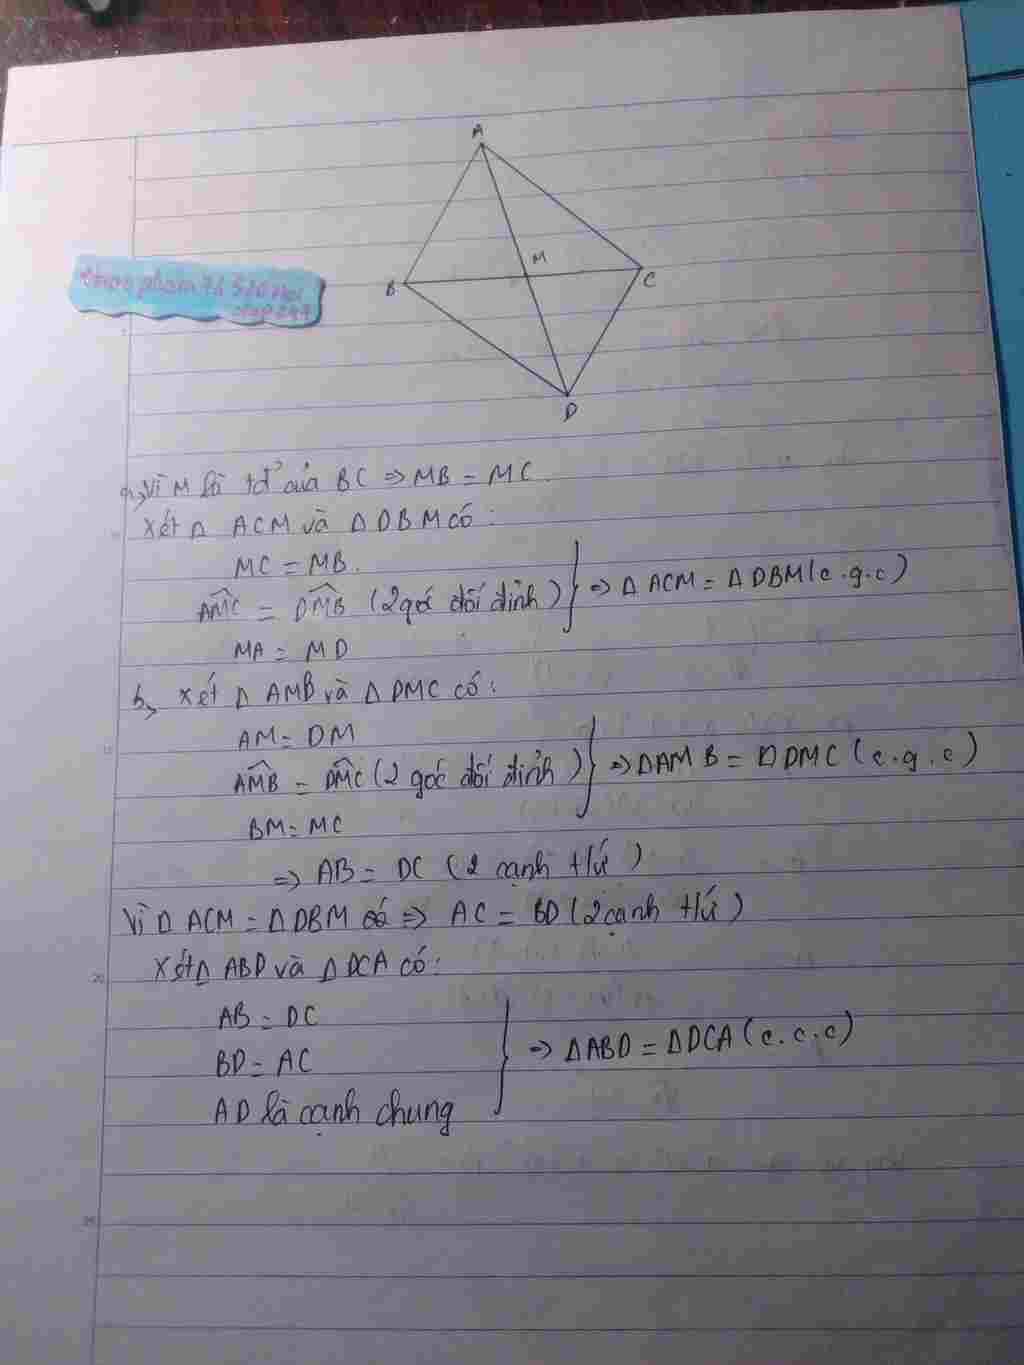 A
M
B
C
D
a, Vì M là tđ của BC => MB = MC.
Xét Δ ACM và Δ DBM có:
MC = MB.
AMC = DMB (2 góc đối đỉnh) } => Δ ACM = Δ DBM (c.g.c)
MA = MD
b, Xét Δ AMB và Δ DMC có:
AM = DM
AMB = DMC (2 góc đối đỉnh) } => Δ AMB = Δ DMC (c.g.c)
BM = MC
=> AB = DC (2 cạnh t/ứ)
Vì Δ ACM = Δ DBM có => AC = BD (2 cạnh t/ứ)
Xét Δ ABD và Δ DCA có:
AB = DC
BD = AC } => Δ ABD = Δ DCA (c.c.c)
AD là cạnh chung
20
25